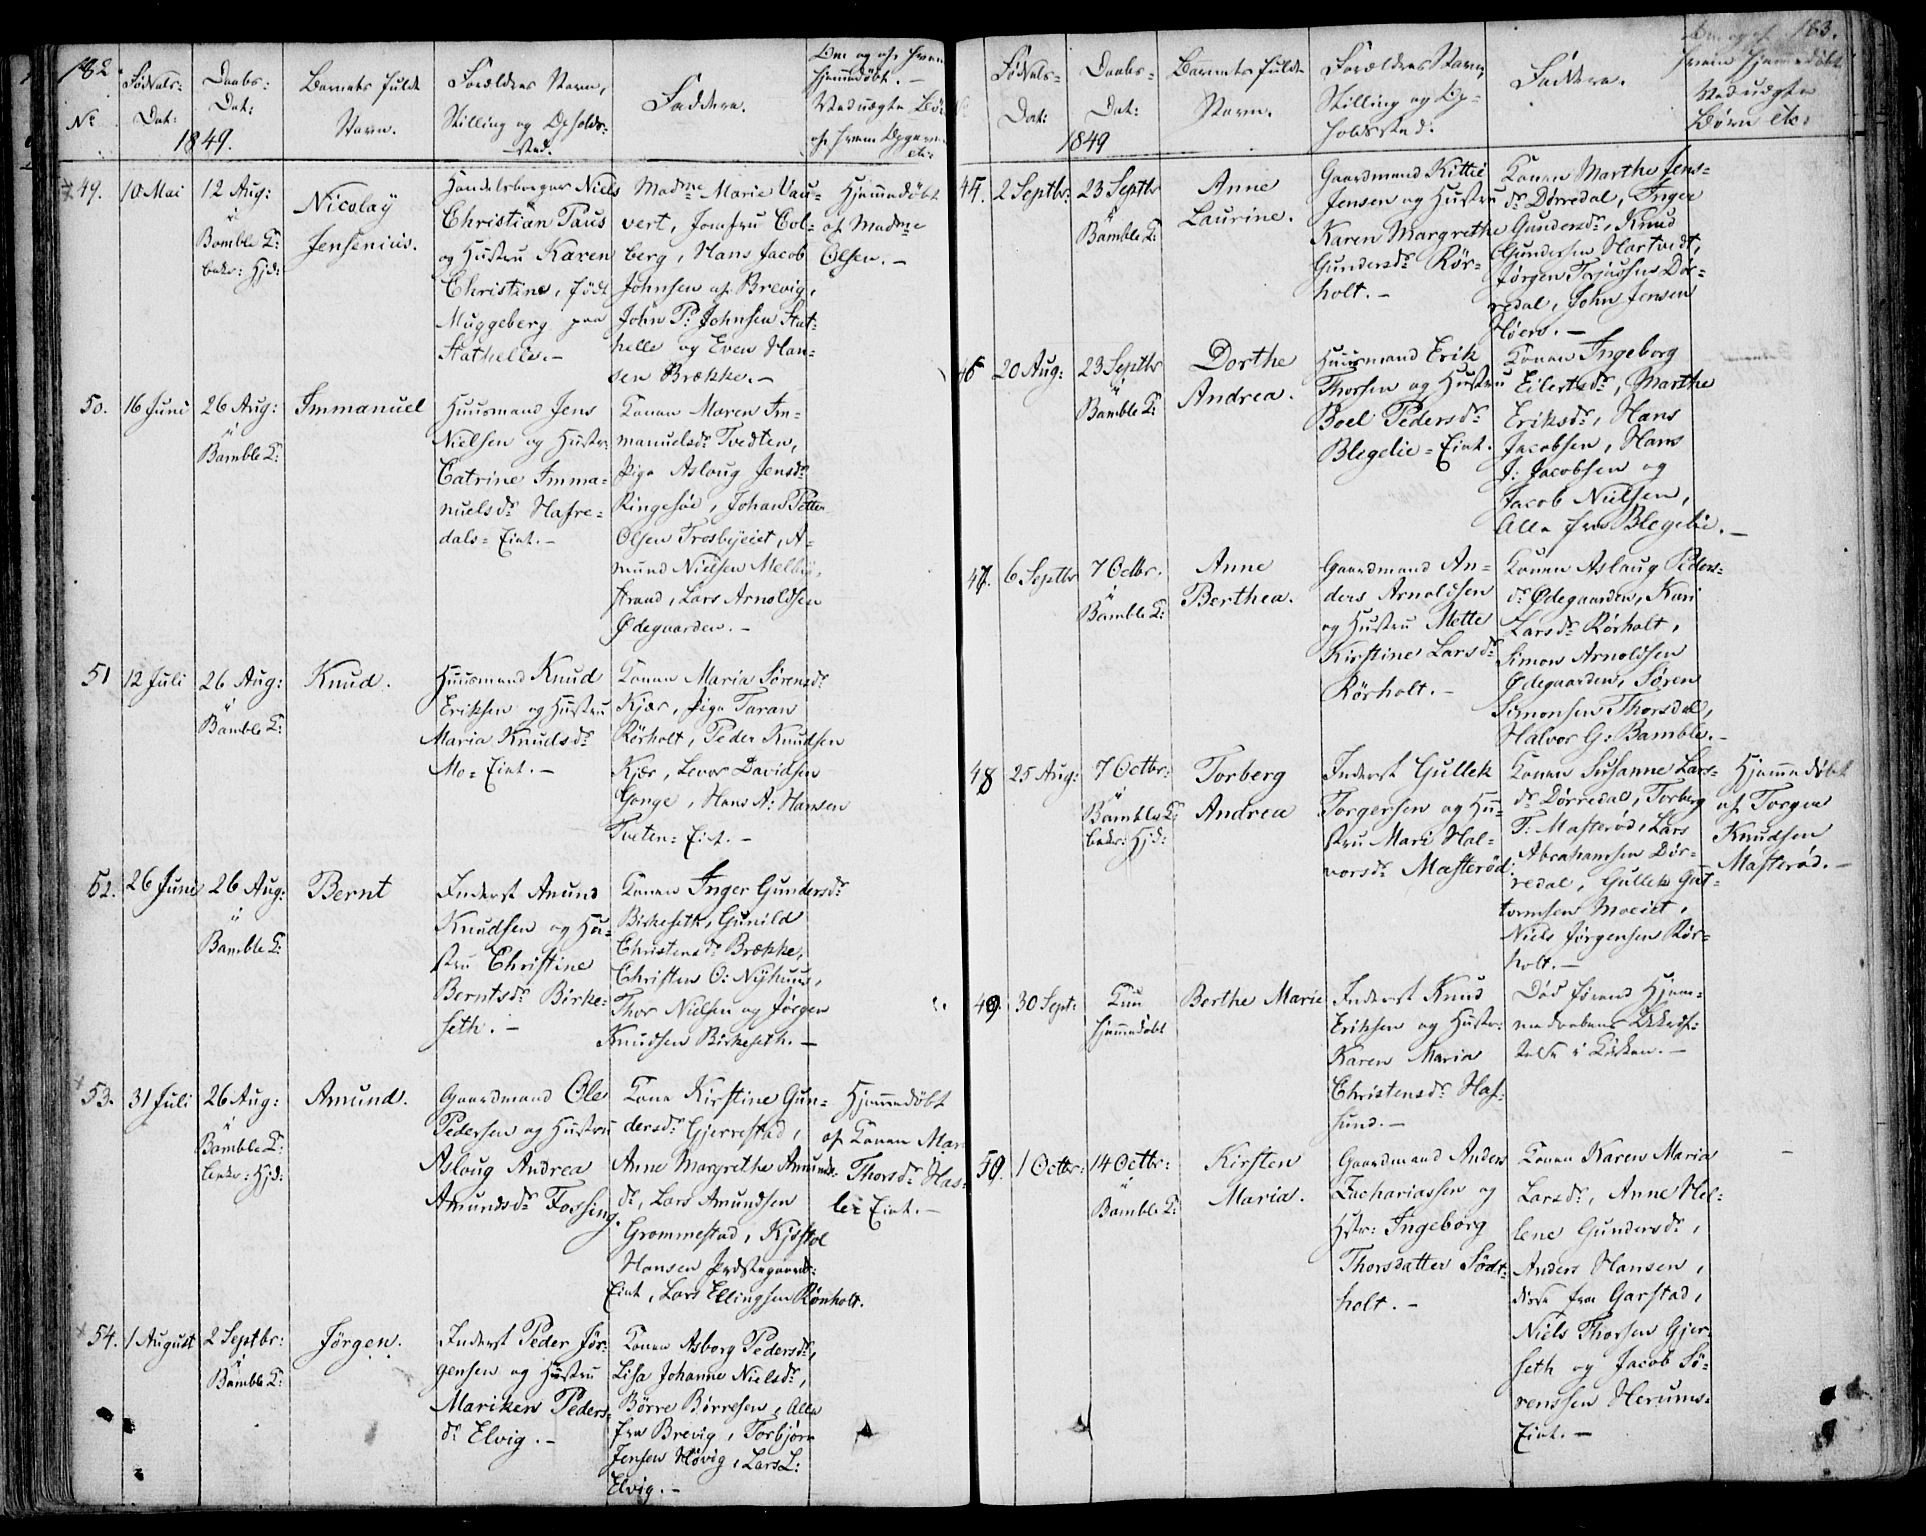 182.
No
Födsels-
Dat:
Daabs-
Dat:
1849.
Barnets fulde
Navn.
Forældres Navne,
Stilling og Opholds-
sted.
Faddere.
Om og af hvem
hjemmedöbt. -
49. 10 Mai 12 Aug:
i
Bamble K:
bekr: Hjd:
Nicolaÿ
Jensenius.
Handelsborger Niels
Christian Paus
og Hustru Karen
Christine, födt
Muggeberg paa
Stathelle. -
Madme Marie Vau-
vert, Jomfru Col-
berg, Hans Jacob
Johnsen af Brevig,
John P: Johnsen Stat-
helle og Even Han-
sen Brække. -
Hjemmedöbt
af Madme
Olsen. -
50. 16 Juni 26 Aug:
i
Bamble K:
Immanuel
Huusmand Jens
Nielsen og Hustr:
Catrine Imma-
nuelsdr Hafre-
dals-Eiet. -
Konen Maren Im-
manuelsdr Tvedten,
Pige Asloug Jensdr
Ringesöe, Johan Petter
Olsen Trosbyeiet, A-
mund Nielsen Melby,
strand, Lars Arnoldsen
Ødegaarden. -
51 12 Juli 26 Aug:
i
Bamble K:
Knud.
Huusmand Knud
Eriksen og Hustru
Maria Knudsdr
Mo-Eiet. -
Konen Maria Sørensdr
Kjær, Pige Taran
Rörholt, Peder Knudsen
Kjær, Levor Davidsen
Gonge, Hans A: Hansen
Tveten-Eiet. -
52. 26 Juni 26 Aug:
i
Bamble K:
Bernt
Inderst Anund
Knudsen og Hu-
stru Christine
Berntsdr Birke-
seth. -
Konen Inger Gundersdr
Birkeseth, Gunild
Christensdr Brække,
Christen O: Nyhuus,
Thor Nielsen og Jörgen
Knudsen Birkeseth. -
53. 31 Juli 26 Aug:
i
Bamble K:
bekr: Hjd:
Amund.
Gaardmand Ole
Pedersen og Hustru
Asloug Andrea
Amundsdr Fossing.
Kone Kirstine Gun-
dersdr Gjerrestad,
Anne Margrethe Amunds-
dr, Lars Amundsen
Grommestad, Kjöstol
Hansen Præstegaards-
Eiet, Lars Ellingsen Rönholt.
Hjemmedöbt
af Konen Mar
Thorsdr Has-
le-Eiet. -
54. 1 August 2 Septbr:
i
Bamble K:
Jörgen.
Inderst Peder Jör-
gensen og Hustru
Mariken Peders-
dr Elvig. -
Konen Asborg Pedersdr,
Lisa Johanne Nielsdr,
Börre Börresen, Alle
fra Brevig, Torbjörn
Jensen Hövig, Lars L:
Elvig. -
183.
Födsels-
Dat:
Daabs-
Dat:
1849
Barnets fulde
Navn.
Forældres Navne,
Stilling og Op-
holdssted.
Faddere.
hvem hjemmedöbt
Uægte
Börn etc:
45. 2 Septbr: 23 Septbr
i
Bamble K:
Anne
Laurine.
Gaardmand Kittil
Jensen og Hustru
Karen Margrethe
Gundersdr Rör-
holt. -
Konen Marthe Jens-
dr Dörredal, Inger
Gundersdr, Knud
Gundersen Hartvedt,
Jörgen Dör-
redal, John Jensen
46 20 Aug: 23 Septbr
i
Bamble K:
Dorthe
Andrea.
Huusmand Erik
Thorsen og Hustru
Boel Pedersdr
Blegelie-Eiet.
Konen Ingeborg
Eilertsdr, Marthe
Eriksdr, Hans
Jacobsen, Hans
J: Jacobsen og
Jacob Nielsen,
Alle fra Blegelie. -
47. 6 Septbr 7 Octbr.
i
Bamble K:
Anne
Berthea.
Gaardmand An-
ders Arnoldsen
og Hustru Mette
Kirstine Larsdr
Rörholt. -
Konen Aslaug Peders-
dr Ødegaarden, Kari
Larsdr Rörholt,
Simon Arnoldsen
Ødegaarden, Sören
Simonsen Thorsdal,
Halvor G: Bamble. -
48 25 Aug: 7 Octbr:
i
Bamble K:
bekr: Hjd:
Torberg
Andrea
Inderst Gullek
Torgersen og Hu-
stru Mari Hal-
vorsdr Masteröd.
Konen Susanne Lars-
dr Dörredal, Torberg
T: Masteröd, Lars
Abrahamsen Dör-
redal, Gullek Gut-
tormsen Moeiet,
Niels Jörgensen Rör-
holt. -
Hjemmedöbt
af Torger
Knudsen
Masteröd. -
49. 30 Sept: Kun
hjemmedöbt
Berthe Marie
Inderst Knud
Eriksen og Hustr:
Karen Maria
Christensdr Haf-
sund. -
Död forend Hjem-
medaabens Bekræf-
telse i Kirken. -
50. 1 Octbr: 14 Octbr:
i
Bamble K:
Kirsten
Maria.
Gaardmand Anders
Zachariassen og
Hstr: Ingeborg
Thorsdatter Södt-
holt. -
Konen Karen Maria
Larsdr, Anne Hel-
lene Gundersdr,
Anders Hansen,
disse fra Garstad,
Niels Thorsen Gjer-
seth og Jacob Sö-
renssen Herums-
Eiet. -